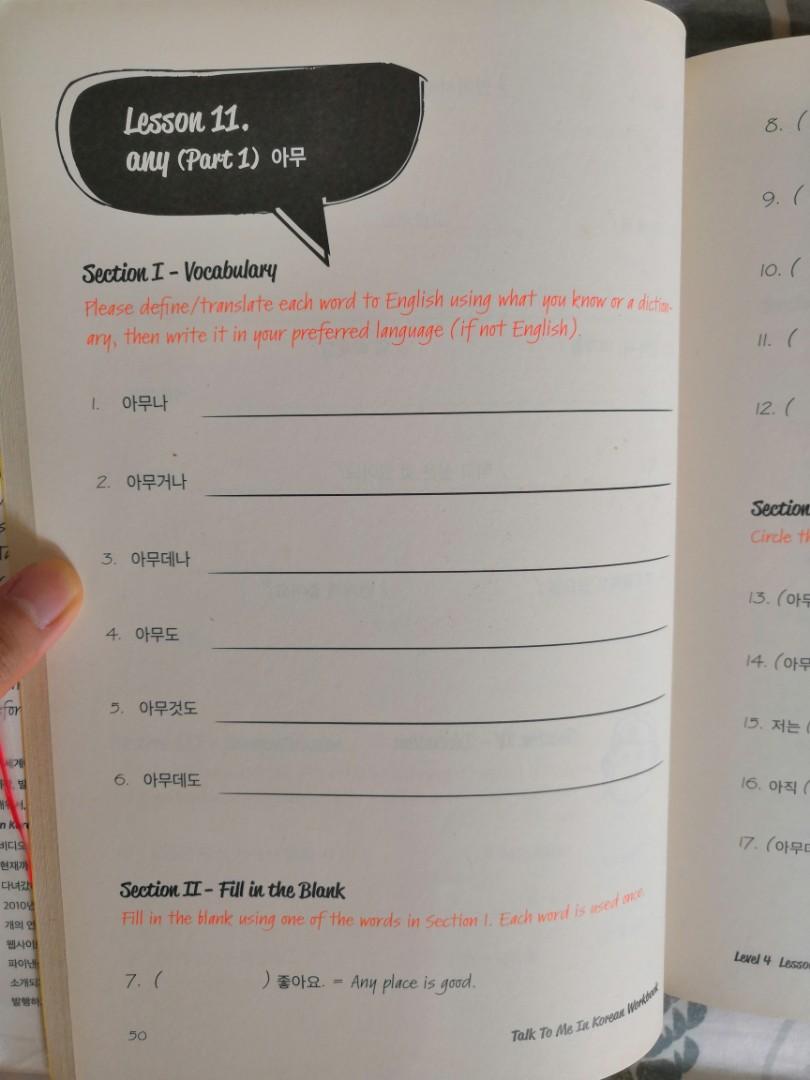 Lesson 11.
any (Part 1) 아무
Section I - Vocabulary
Please define/translate each word to English using what you know or a diction-
ary, then write it in your preferred language (if not English).
1. 아무나
2. 아무거나
3. 아무데나
4. 아무도
5. 아무것도
6. 아무데도
Section II - Fill in the Blank
Fill in the blank using one of the words in Section I. Each word is used once.
7. ( ) 좋아요. = Any place is good.
50
Talk To Me In Korean Workbook
8. (
9. (
10. (
11. (
12. (
Section
Circle
13. (아무
14. (아무
15. 저는 (
16. 아직 (
17. (아무
Level 4
세계
비디오
현재까
다녀갔
2010년
개의 연
웹사이
파이낸
소개되
발행하